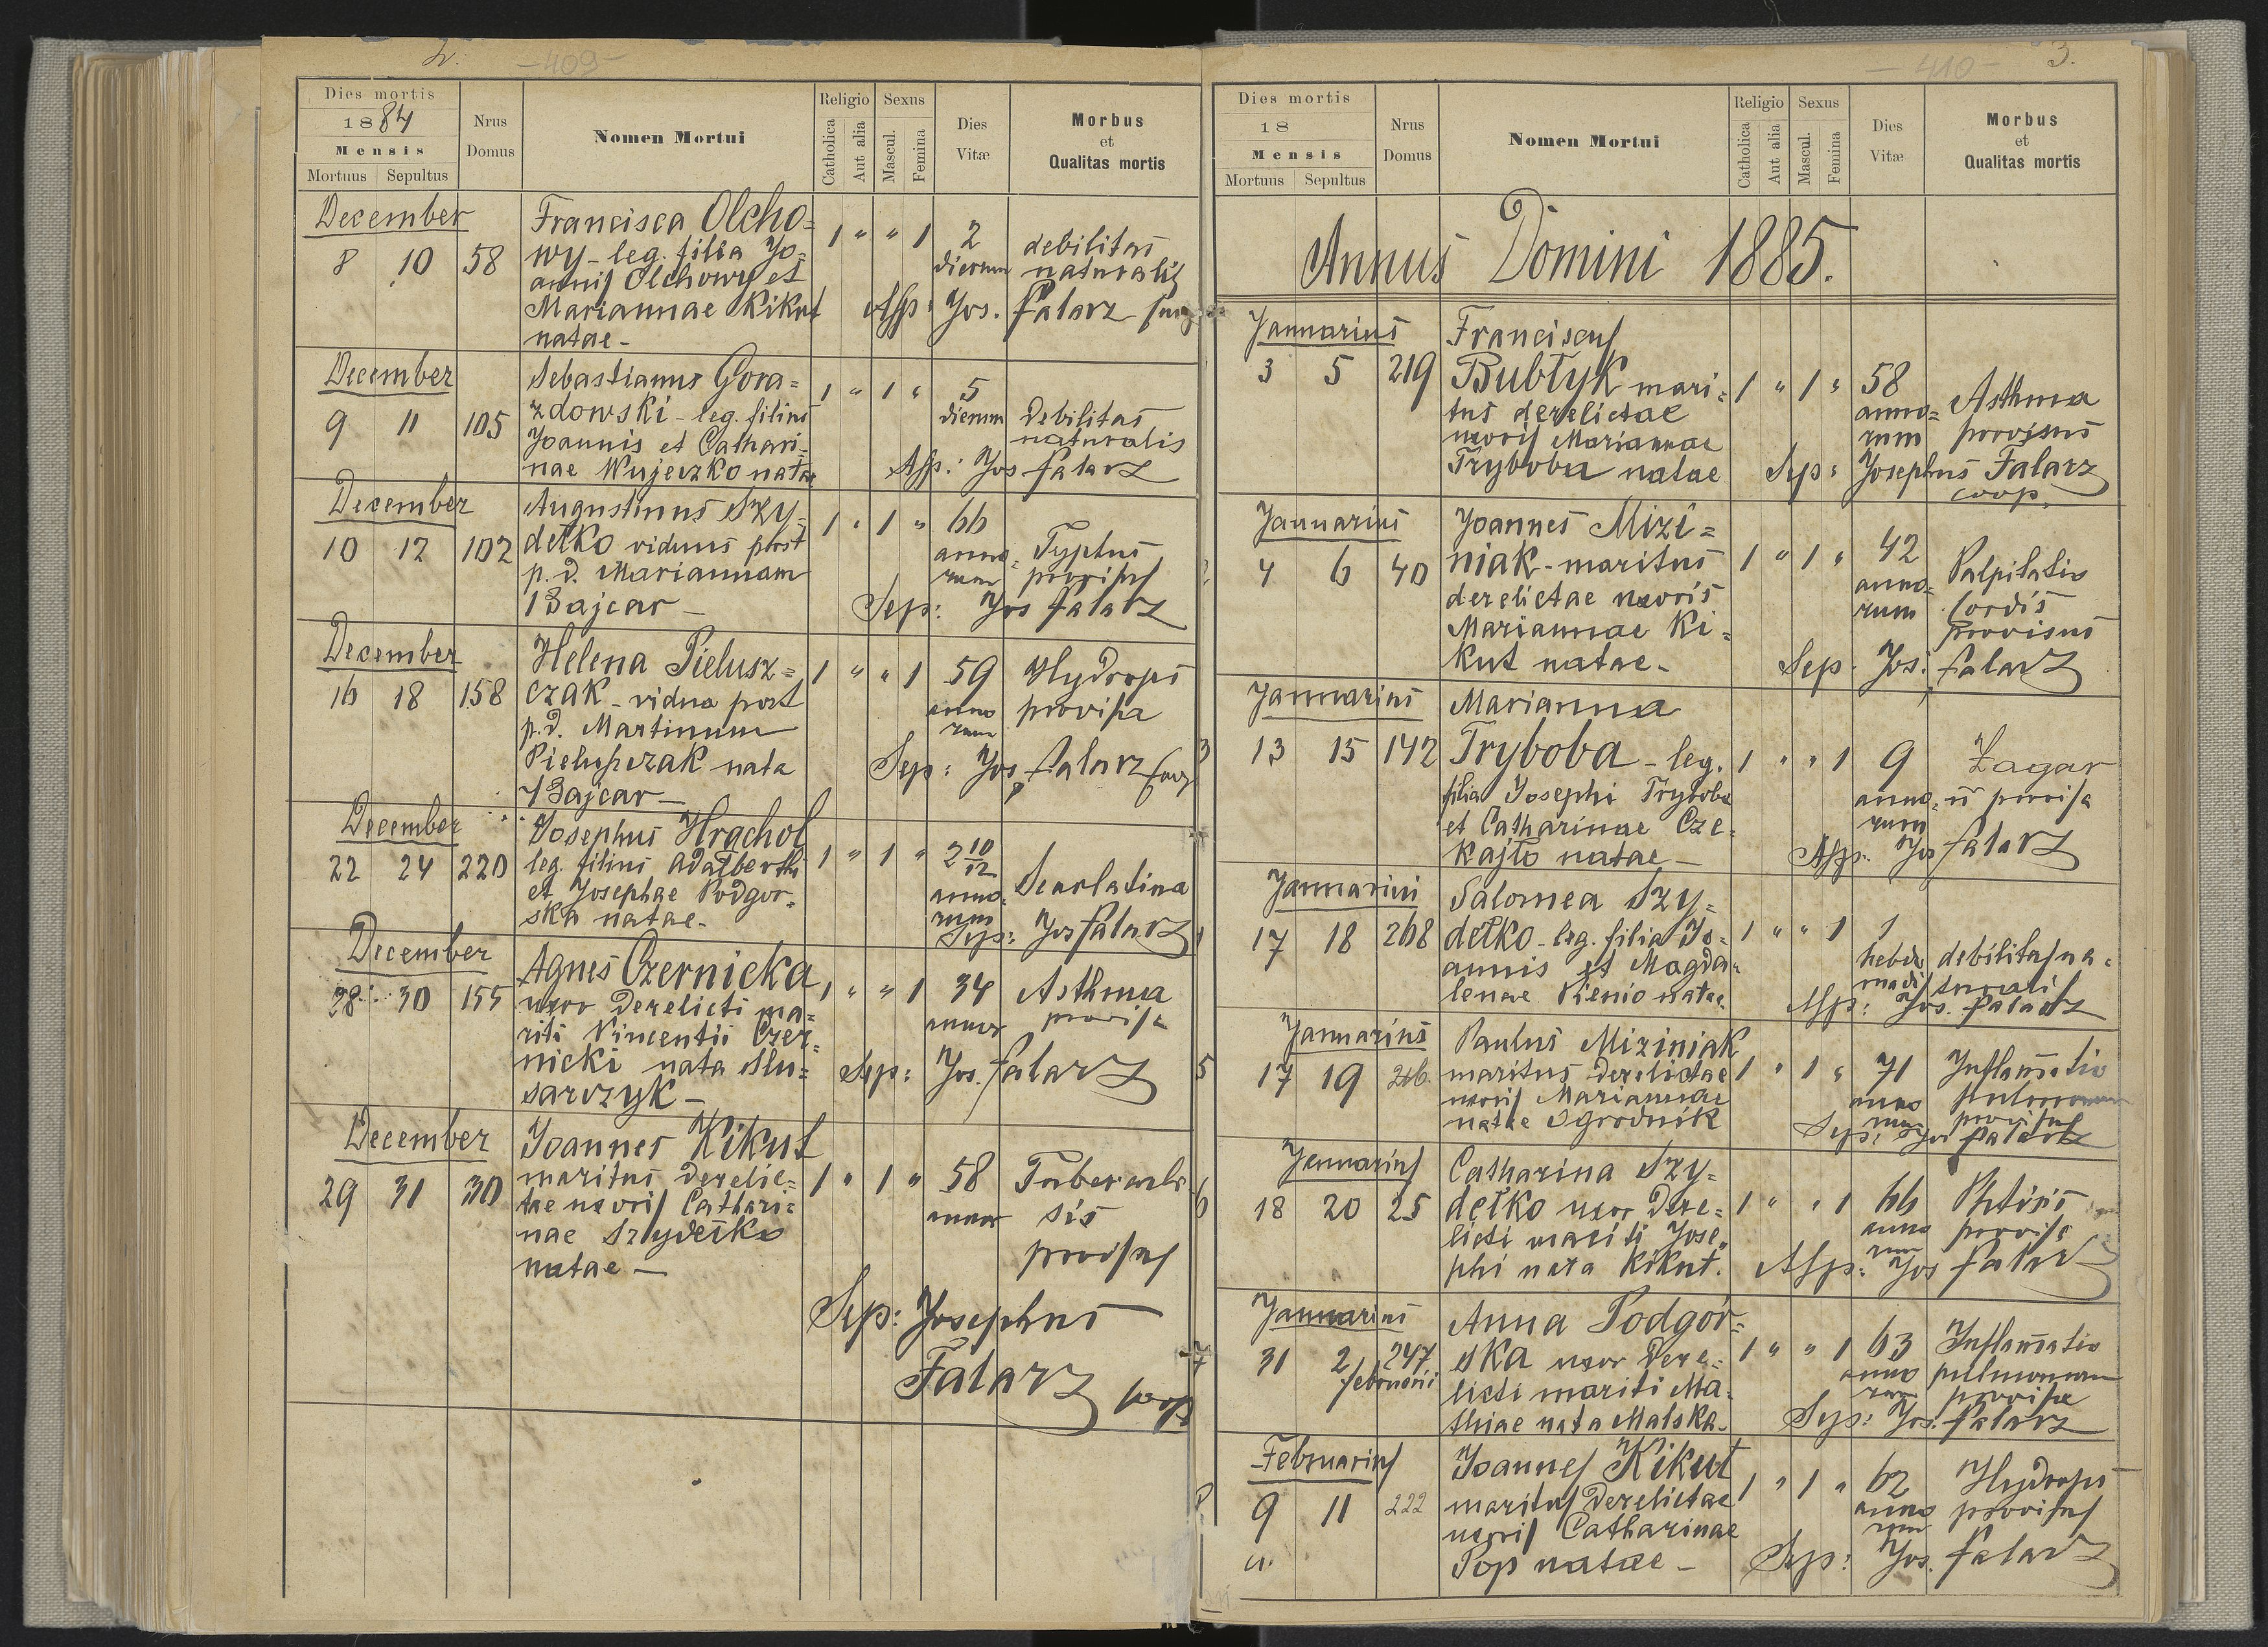 2.
-409-
Dies mortis
1884
Mensis
Mortuus Sepultus
Nrus
Domus
Nomen Mortui
Religio
Catholica
Aut alia
Sexus
Mascul.
Femina
Dies
Vitæ
Morbus
et
Qualitas mortis
December
8 10 58
Francisca Olcho=
wy - leg. filia Jo=
annis Olchowy et
Mariannae Kikut
natae -
1 " " 1
2
dierum
debilitas
naturalis
Assp: Jos. Falarz
December
9 11 105
Sebastianus Gora=
zdowski - leg. filius
Joannis et Cathari=
nae Wujeczko natae
1 " 1 "
5
dierum
debilitas
naturalis
Assp: Jos Falarz
December
10 12 102
Augustinus Szy=
dełko viduus post
p. d. Mariannam
Bajcar -
1 " 1 "
66
anno=
rum
Typhus
provisus
Sep: Jos Falarz
December
16 18 158
Helena Pielusz=
czak - vidua post
p. d. Martinum
Pieluszczak nata
Bajcar -
1 " " 1
59
anno
rum
Hydrops
provisa
Sep: Jos Falarz coop
December
22 24 220
Josephus Hrachol
leg. filius Adalberthi
et Josephae Podgor=
ska natae -
1 " 1 "
2 10/12
anno=
rum
Scarlatina
Sep: Jos Falarz
December
28 30 155
Agnes Czernicka
uxor derelicti ma=
riti Vincentii Czer=
nicki nata Slu=
sarczyk -
1 " " 1
34
annor
Asthma
provisa
Sep: Jos. Falarz
December
29 31 30
Joannes Kikut
maritus derelic=
tae uxoris Cathari=
nae Szydełko
natae -
1 " 1 "
58
annor
Tuberculo
sis
provisus
Sep: Josephus
Falarz coop
-410-
3.
Dies mortis
18
Mensis
Mortuus Sepultus
Nrus
Domus
Nomen Mortui
Religio
Catholica
Aut alia
Sexus
Mascul.
Femina
Dies
Vitæ
Morbus
et
Qualitas mortis
Annus Domini 1885.
Januarius
3 5 219
Franciscus
Bubłyk mari=
tus derelictae
uxoris Mariannae
Tryboba natae
1 " 1 "
58
anno=
rum
Asthma
provisus
Sep: Josephus Falarz
coop.
Januarius
4 6 40
Joannes Mizi=
niak - maritus
derelictae uxoris
Mariannae Ki=
kut natae -
1 " 1 "
42
anno=
rum
Palpitatio
Cordis
provisus
Sep: Jos: Falarz
3
Januarius
13 15 142
Marianna
Tryboba - leg.
filia Josephi Tryboba
et Catharinae Cze=
kajło natae -
1 " " 1
9
anno=
rum
provisa
Assp: Jos Falarz
Januarius
17 18 268
Salomea Szy=
dełko - leg. filia Jo=
annis et Magda=
lenae Pienio natae
1 " " 1
1
hebdo
madis
debilitas na=
turalis
Assp: Jos. Falarz
5
Januarius
17 19
Paulus Miziniak
maritus derelictae
uxoris Mariannae
natae Ogrodnik
1 " 1 "
71
anno
rum
Inflamatio
pulmonum
provisus
Sep: Jos Falarz
6
Januarius
18 20 25
Catharina Szy=
dełko uxor dere=
licti mariti Jose=
phi nata Kikut.
1 " " 1
66
anno
rum
Phtisis
provisa
Assp: Jos Falarz
7
Januarius
31 2 247
februarii
Anna Podgór=
ska uxor dere=
licti mariti Ma=
thiae nata Malska -
1 " " 1
63
anno
rum
Inflamatio
pulmonum
provisa
Sep: Jos. Falarz
8
Februarius
9 11 222
Joannes Kikut
maritus derelictae
uxoris Catharinae
Pop natae -
1 " 1 "
62
anno
rum
Hydrops
provisus
Sep: Jos. Falarz